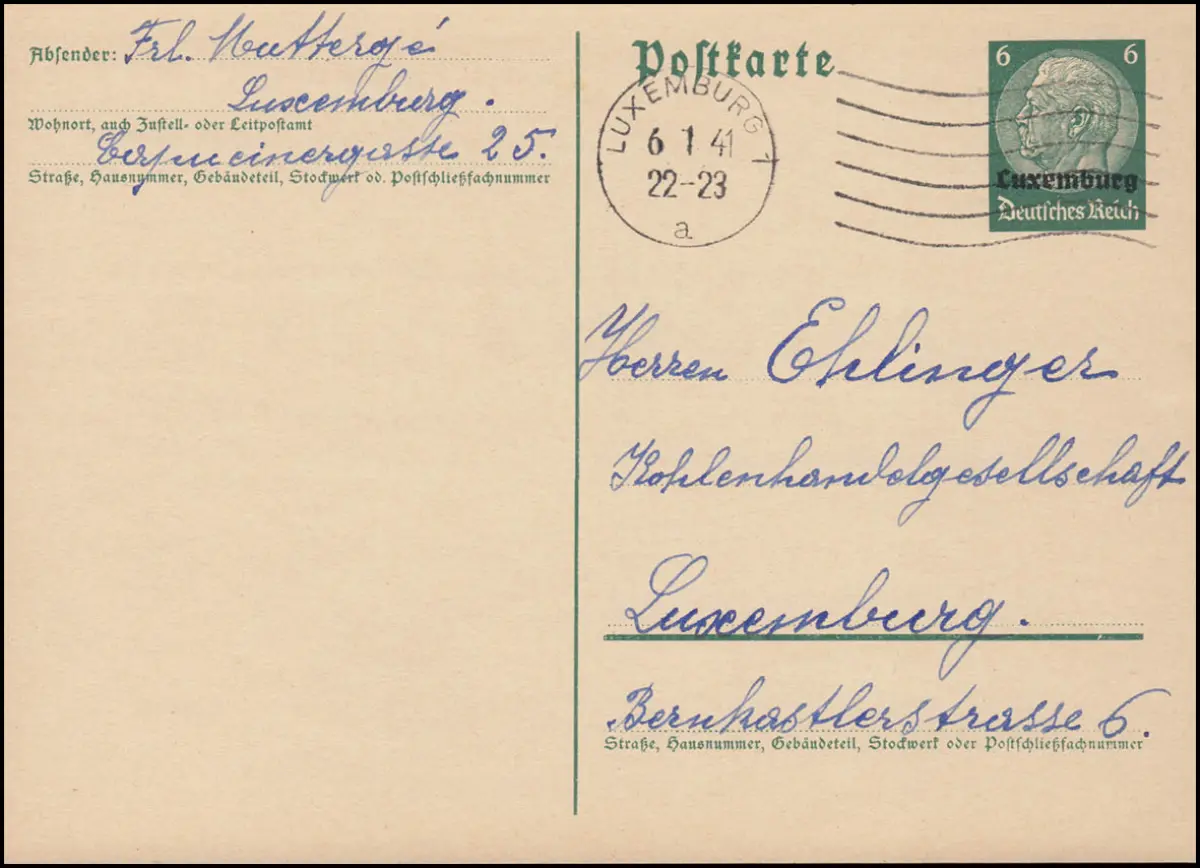 Absender: Frl. Muttergé
Luxemburg.
Wohnort, auch Zustell- oder Leitpostamt
Capucinergasse 25.
Straße, Hausnummer, Gebäudeteil, Stockwerk od. Postschließfachnummer
Postkarte
LUXEMBURG 1
6 1 41
22-23
a
6 6
Luxemburg
Deutsches Reich
Herren Ehlinger
Kohlenhandelgesellschaft
Luxemburg.
Bernkastlerstrasse 6.
Straße, Hausnummer, Gebäudeteil, Stockwerk oder Postschließfachnummer